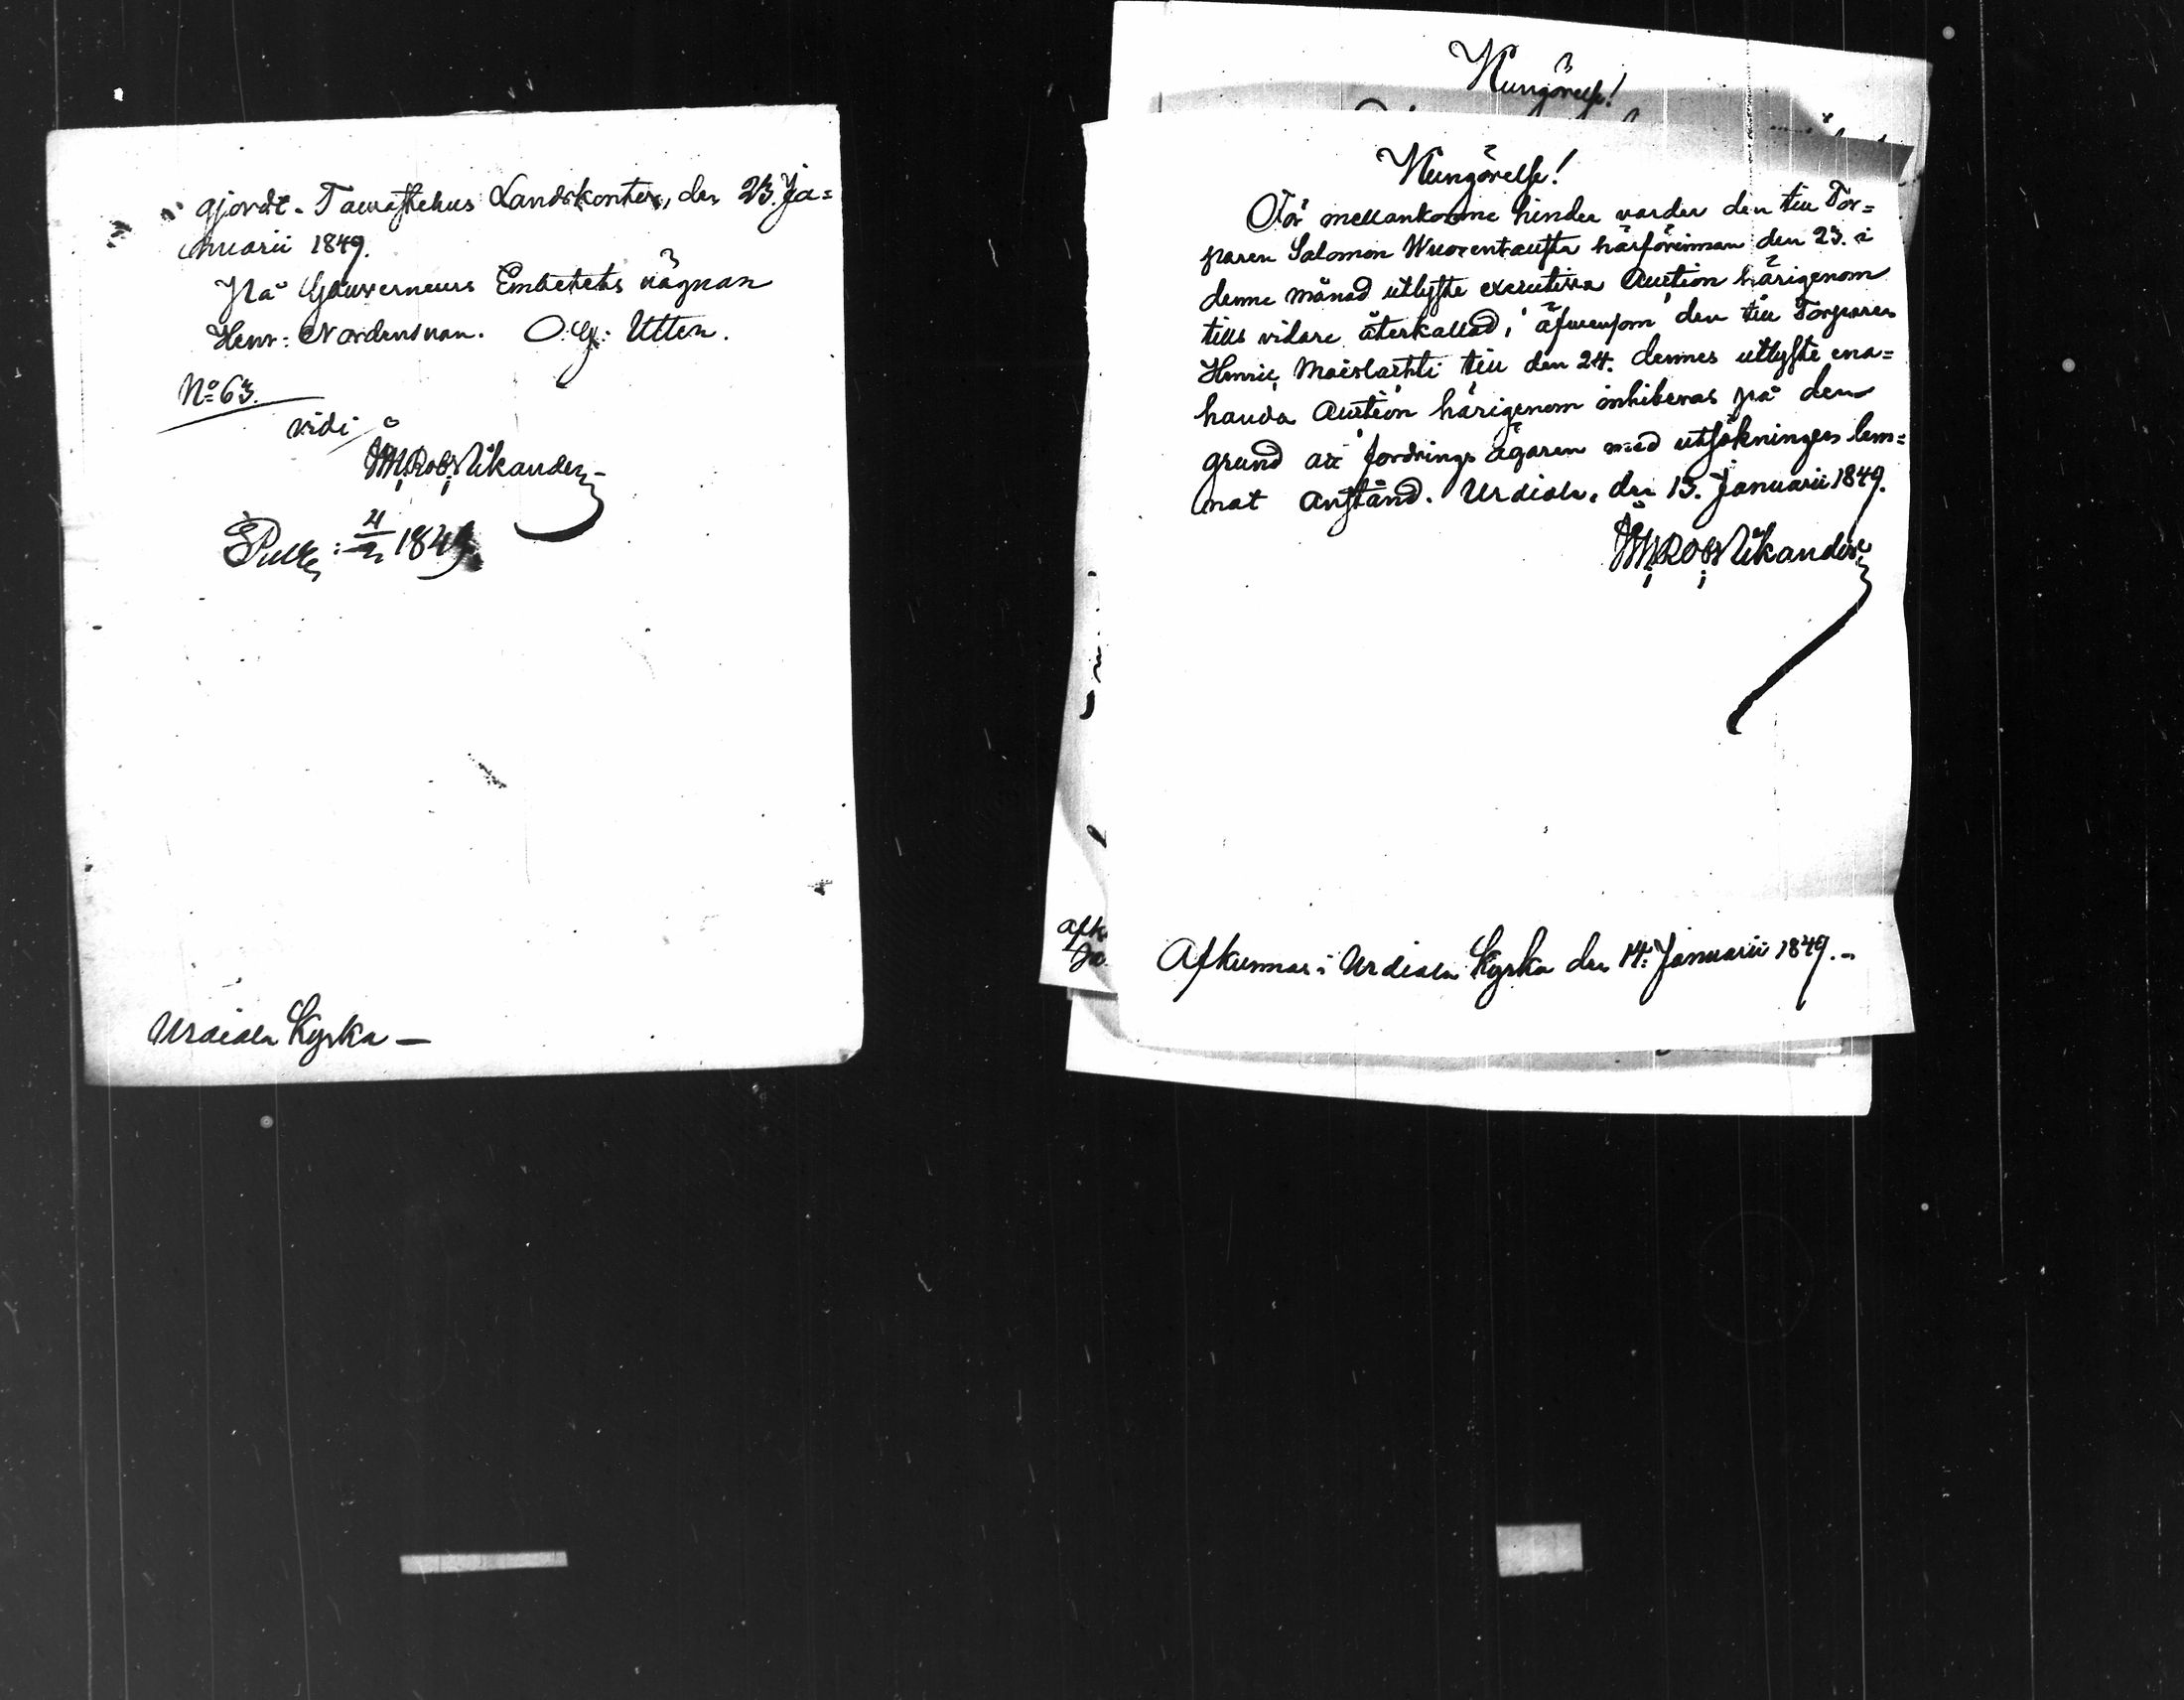 gjordt. Tawastehus Landskontor, den 23. Ja=
nuarii 1849.
På Gouverneurs Embetets vägnar
Henr: Nordensvan. O. G: Utter.
No 63.
vidi
Nikander
Publ: 4/2 1849
Urdiala Kyrka —
Kungörelse!
Kungörelse!
För mellankomne hinder varder den till Tor=
paren Salomon härförinnan den 23. i
denne månad utlyste executiva Auction härigenom
tills vidare återkallad, äfwensom den till Torparen
Henric Maislachti till den 24. dennes utlyste ena=
handa Auction härigenom inhiberas på den
grund att fordrings ägaren med utsökningen lem=
nat anstånd. Urdiala, den 13. Januarii 1849.
Nikander
afk
Ja
Afkunnas i Urdiala Kyrka den 14. Januarii 1849. -